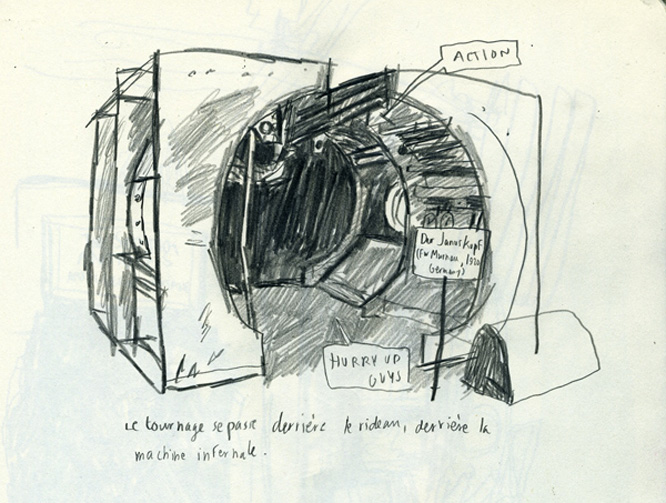 ACTION
Der Januskopf
(FW Murnau, 1920
Germany)
HURRY UP
GUYS
Le tournage se passe derrière le rideau, derrière la
machine infernale.